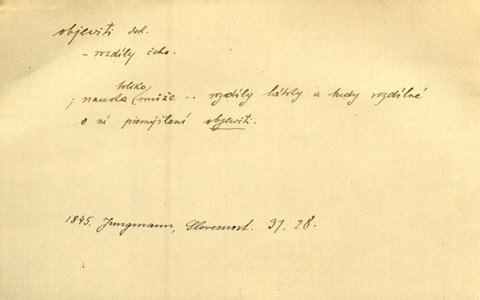 objeviti dok.
– rozdíly čeho.
toliko
; nauka (může .. rozdíly látky a tudy rozdílné
o ní přemýšlení objeviti.
1845. Jungmann, Slovesnost. 31. 28.